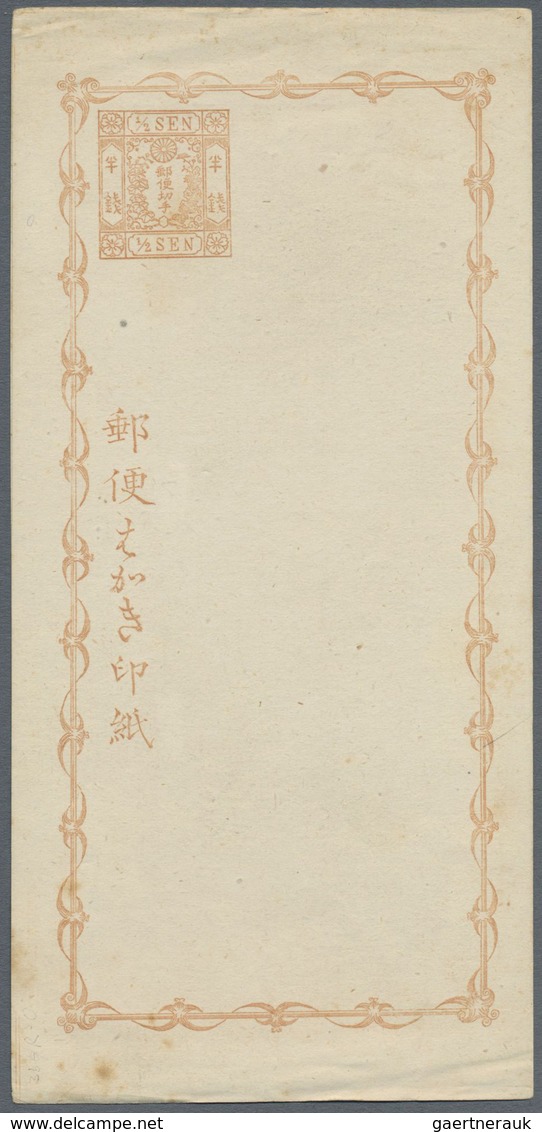 ½ SEN
半錢
郵便切手
半錢
½ SEN
郵便はがき印紙
delcampe.net
gaertnerauk